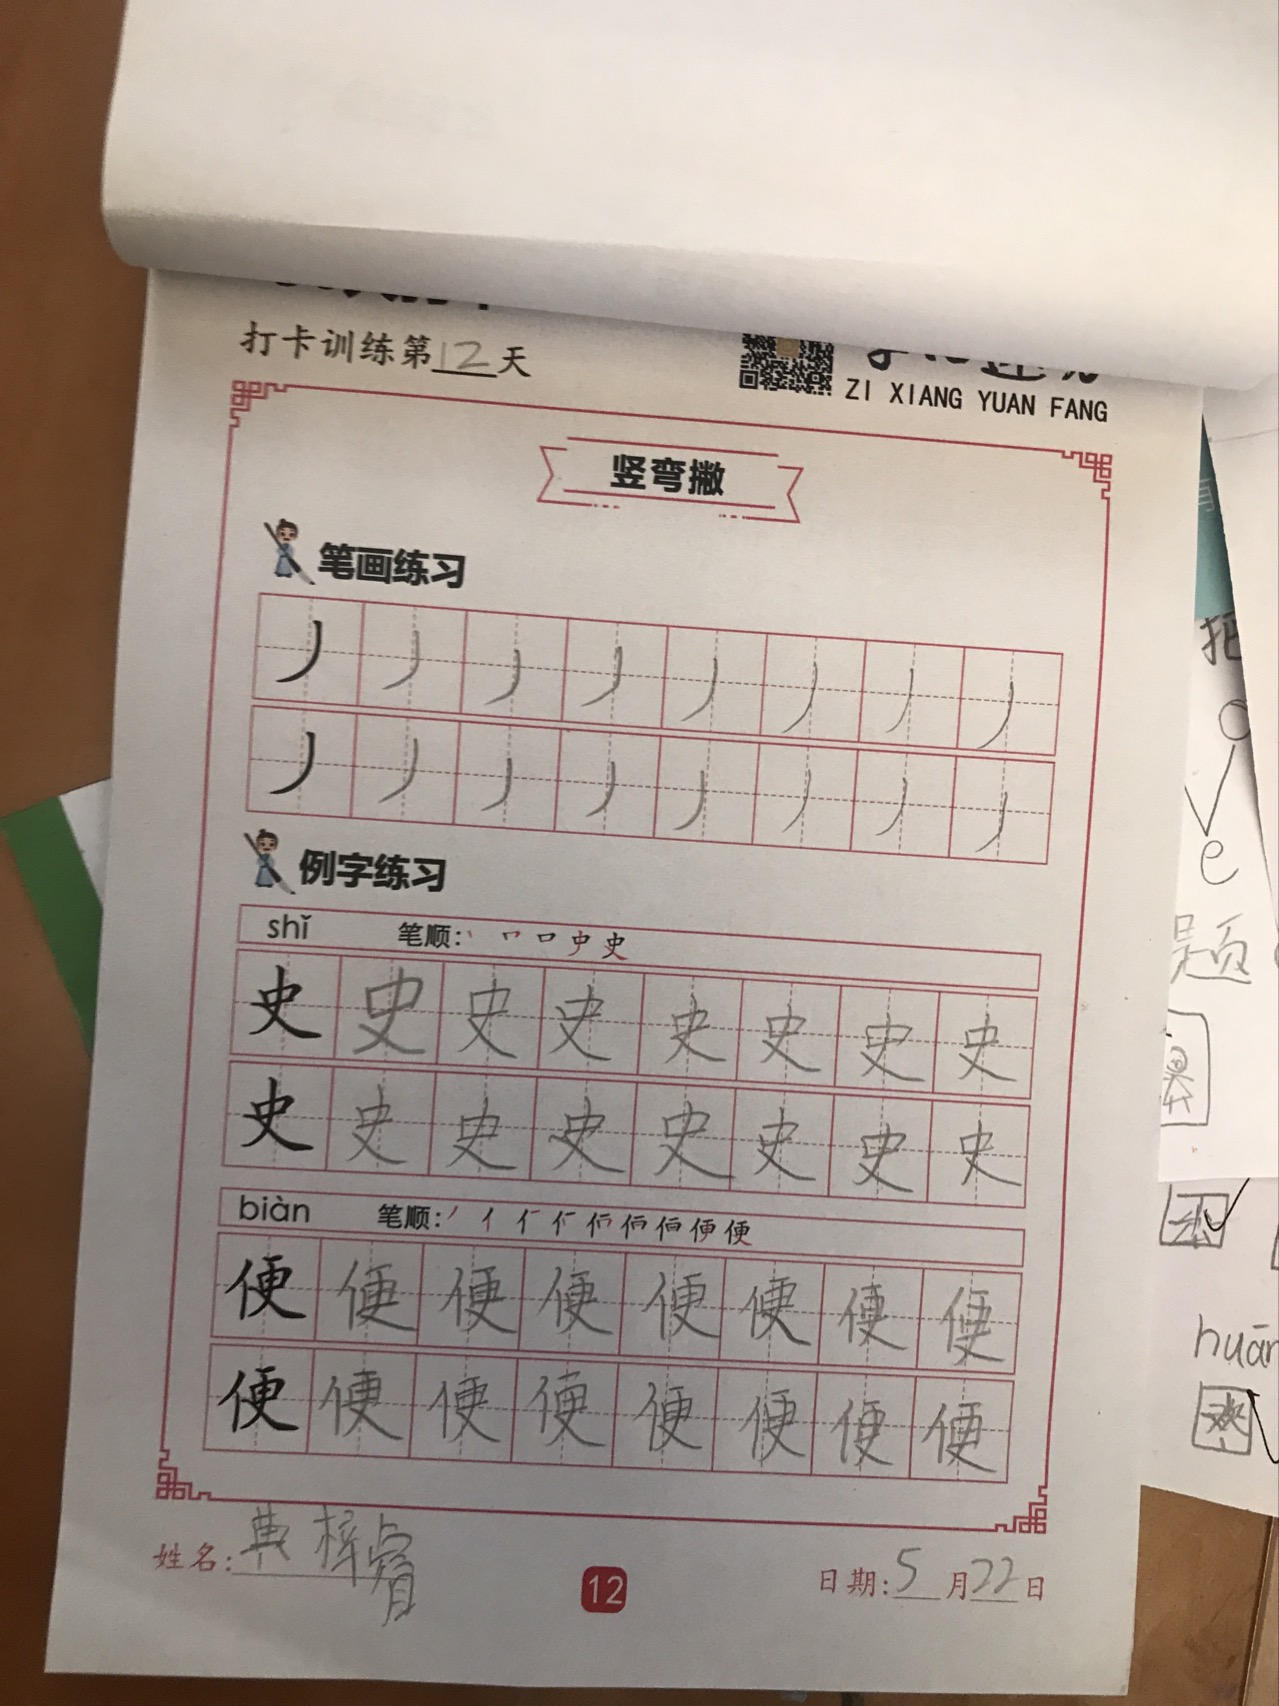 打卡训练第12天
ZI XIANG YUAN FANG
竖弯撇
笔画练习
丿 丿 丿 丿 丿 丿 丿 丿
丿 丿 丿 丿 丿 丿 丿 丿
例字练习
shǐ 笔顺:
史 史 史 史 史 史 史 史
史 史 史 史 史 史 史 史
biàn 笔顺:
便 便 便 便 便 便 便 便
便 便 便 便 便 便 便 便
姓名: 典梓睿
12
日期:5月22日
把
e
题
huān